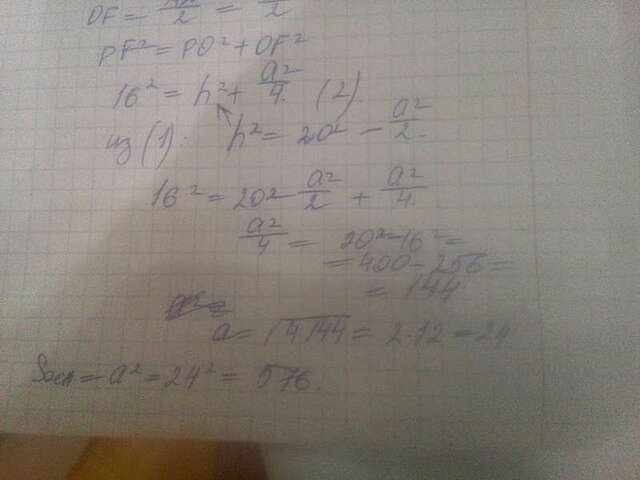 OF = /2 = /2
PF² = PO² + OF²
16² = h² + a²/4. (2)
из (1): h² = 20² - a²/2.
16² = 20² - a²/2 + a²/4.
a²/4 = 20² - 16² =
= 400 - 256 =
= 144
a = √4·144 = 2·12 = 24
Sосн = a² = 24² = 576.